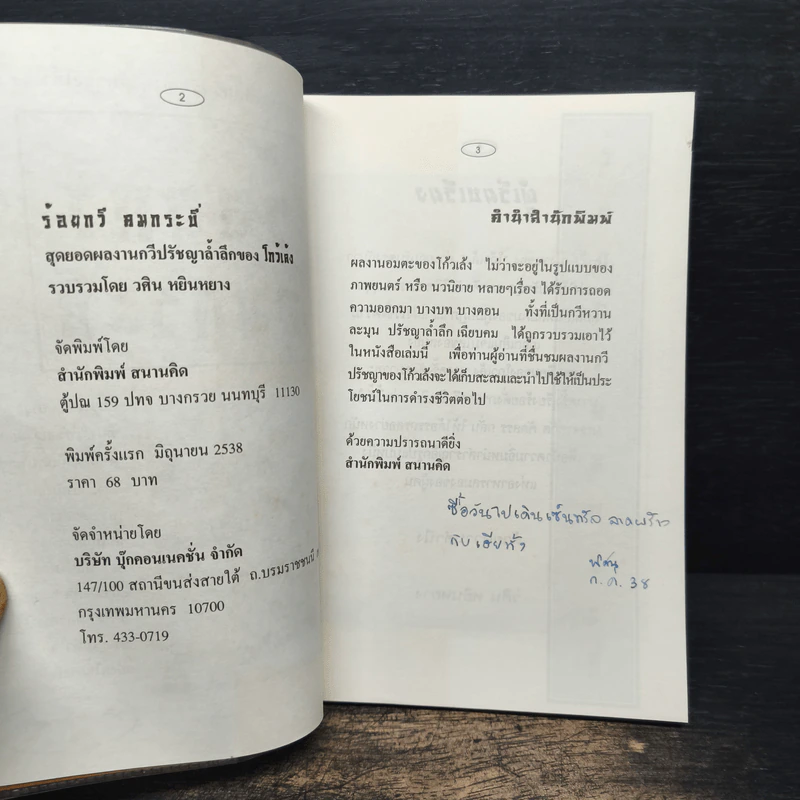 2
ร้อยกวี คมกระบี่
สุดยอดผลงานกวีปรัชญาล้ำลึกของ โกวเล้ง
รวบรวมโดย วศิน หยินหยาง
จัดพิมพ์โดย
สำนักพิมพ์ สนานคิด
ตู้ปณ 159 ปทจ บางกรวย นนทบุรี 11130
พิมพ์ครั้งแรก มิถุนายน 2538
ราคา 68 บาท
จัดจำหน่ายโดย
บริษัท บุ๊กคอนเนคชั่น จำกัด
147/100 สถานีขนส่งสายใต้ ถ.บรมราชชนนี
กรุงเทพมหานคร 10700
โทร. 433-0719
3
คำนำสำนักพิมพ์
ผลงานอมตะของโก้วเล้ง ไม่ว่าจะอยู่ในรูปแบบของ
ภาพยนตร์ หรือ นวนิยาย หลายๆเรื่อง ได้รับการถอด
ความออกมา บางบท บางตอน ทั้งที่เป็นกวีหวาน
ละมุน ปรัชญาล้ำลึก เฉียบคม ได้ถูกรวบรวมเอาไว้
ในหนังสือเล่มนี้ เพื่อท่านผู้อ่านที่ชื่นชมผลงานกวี
ปรัชญาของโก้วเล้งจะได้เก็บสะสมและนำไปใช้ให้เป็นประ
โยชน์ในการดำรงชีวิตต่อไป
ด้วยความปรารถนาดียิ่ง
สำนักพิมพ์ สนานคิด
ซื้อวันไปเดินเซ็นทรัล ลาดพร้าว
กับเฮียทั้ง
ก.ค. 38